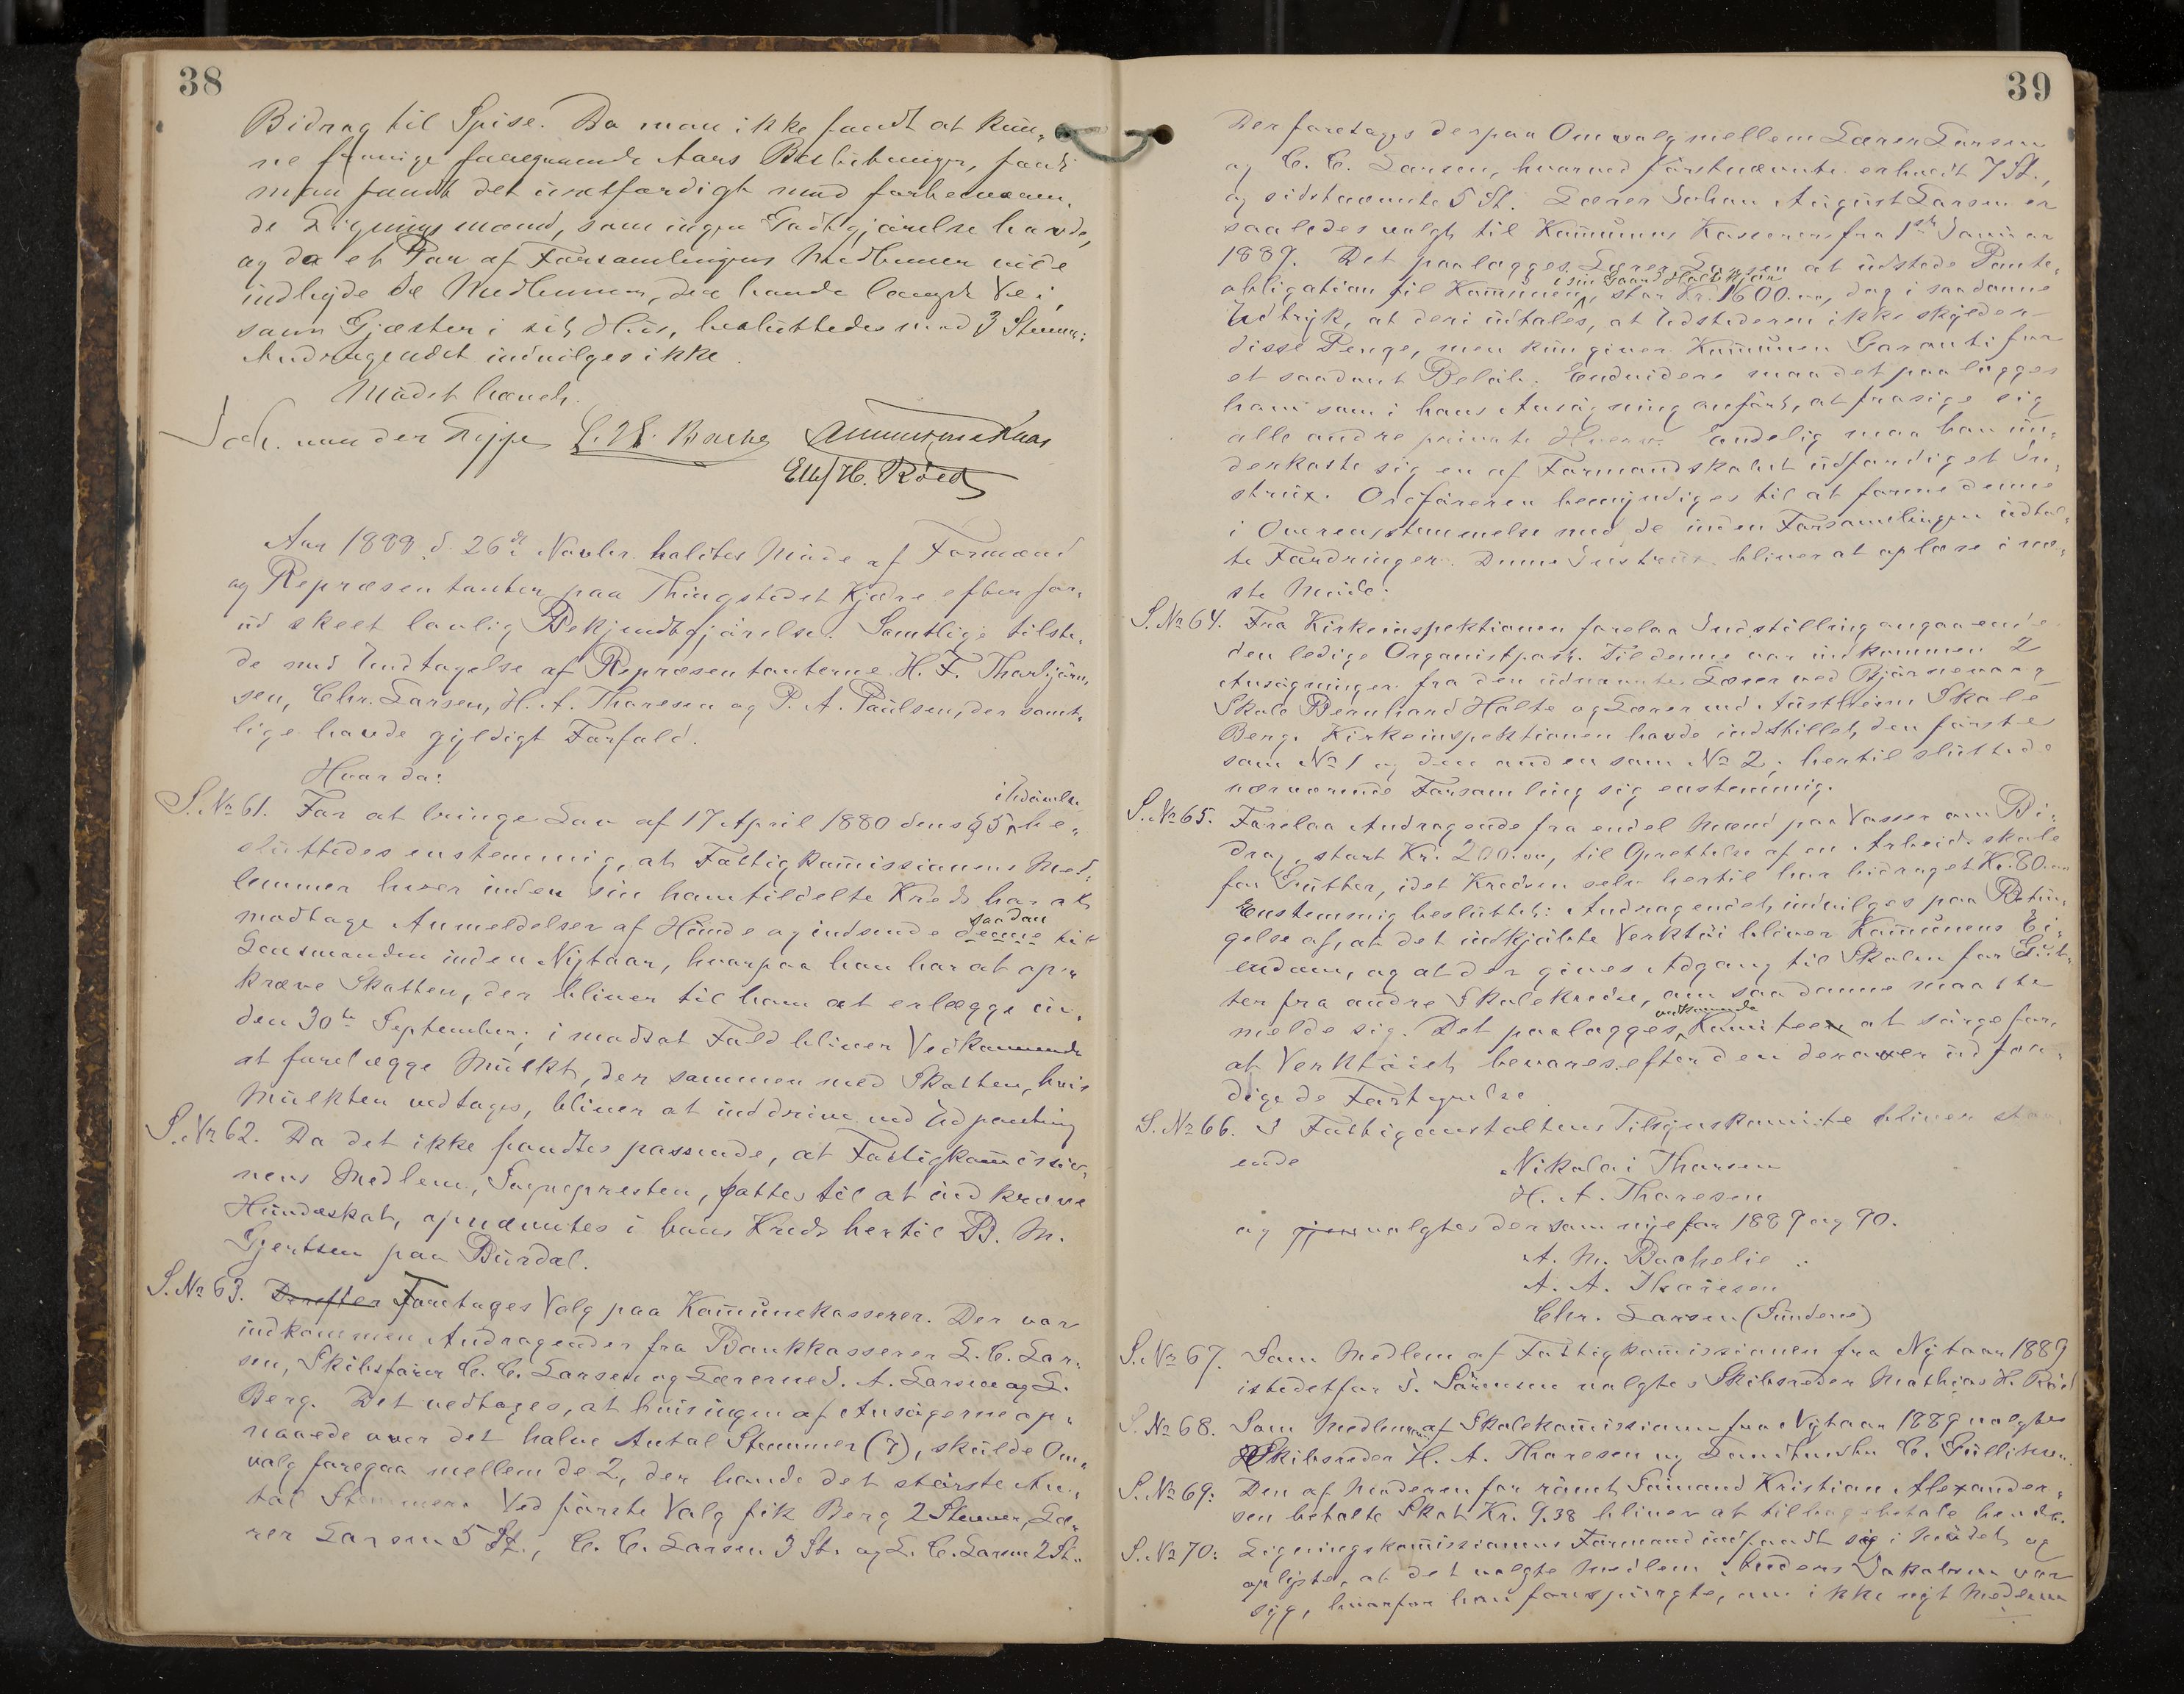 38
Bidrag til Spise. Da man ikke fandt at kun-
ne foregaaende Aars Beslutninger, fandt
man fandt det uretfærdigt mod forhenværen-
de Ligningsmænd, som ingen Godtgjørelse havde,
og da et Par af Forsamlingens Medlemmer vilde
indbyde de Medlemmer, der havde længst Vei,
som Gjæster i sit Hus, besluttedes med 3 Stemmer:
Andragendet indvilges ikke.
Mødet hævet.
Joh. von der Lippe
Ellef H. Röed
Aar 1888 d. 26de Novbr. holdtes Møde af Formænd
og Repræsentanter paa Thingstedet Kjære efter for-
ud skeet lovlig Bekjendtgjørelse. Samtlige tilste-
de med Undtagelse af Repræsentanterne H. F. Thorbjørn-
sen, Chr. Larsen, H. A. Thoresen og P. A. Paulsen, der samt-
lige havde gyldigt Forfald.
Hvor da:
S. No 61. For at bringe Lov af 17 April 1880 dens § 5 i Udøvelse be-
sluttedes enstemmig, at Fattigkommissionens Med-
lemmer hver inden sin ham tildelte Kreds har at
modtage Anmeldelser af Hunde og indsende denne saadan til
Lensmanden inden Nytaar, hvorpaa han har at op-
kræve Skatten, der bliver til ham at erlægge in-
den 30te September; i modsat Fald bliver Vedkommende
at forelægge Mulkt, der sammen med Skatten, hvis
Mulkten vedtages, bliver at inddrive ved Udpantning
S. No 62. Da det ikke fandtes passende, at Fattigkommissio-
nens Medlem, Sognepresten, sattes til at indkræve
Hundeskat, opnævntes i hans Kreds hertil B. M.
Gjertsen paa Burdal.
S. No 63. Derefter Foretages Valg paa Kommunekasserer. Der var
indkommen Andragender fra Bankkasserer L. C. Lar-
sen, Skibsfører C. C. Larsen og Lærerne J. A. Larsen og L.
Berg. Det vedtages, at hvis ingen af Ansøgerne op-
naaede over det halve Antal Stemmer (7), skulde Om-
valg foregaa mellem de 2, der havde det største An-
tal Stemmer. Ved første Valg fik Berg 2 Stemmer, Læ-
rer Larsen 5 St., C. C. Larsen 3 St. og L. C. Larsen 2 St..
39
Der foretages derpaa Omvalg mellem Lærer Larsen
og C. C. Larsen, hvorved førstnævnte erholdt 7 St.,
og sidstnævnte 5 St. Lærer Johan August Larsen er
saaledes valgt til Kommunens Kasserer fra 1ste Januar
1889. Det paalægges Lærer Larsen at udstede Pante-
obligation til Kommunen i sin Gaard, stor Kr. 1600.00, dog i saadanne
Udtryk, at deri udtales, at Udstederen ikke skylder
disse Penge, men kun giver Kommunen Garanti for
et saadant Beløb. Endvidere maa det paalægges
ham som i hans Ansøgning anført, at frasige sig
alle andre private Hverv. Endelig maa han un-
derkaste sig en af Formandskabet udfærdiget In-
strux. Ordføreren bemyndiges til at forme denne
i Overensstemmelse med de inden Forsamlingen udtal-
te Fordringer. Denne Instrux bliver at oplæse i næ-
ste Møde.
S. No 64. Fra Kirkeinspektionen forelaa Indstilling angaaende
den ledige Organistpost. Til denne var indkommen 2
Ansøgninger fra den udnævnte Lærer ved Bjørnevaag
Skole Bernhard Holte og Lærer ved Austheim Skole
Berg. Kirkeinspektionen havde indstillet den første
som No 1 og den anden som No 2; hertil sluttede
nærværende Forsamling sig enstemmig.
S. No 65. Forelaa Andragende fra endel Mænd paa Vasser om Bi-
drag, stort Kr. 200.00, til Oprettelse af en Arbeidsskole
for Gutter, idet Kredsen selv hertil har bidraget Kr. 80.00
Enstemmig besluttet: Andragendet indvilges paa Betin-
gelse af, at det indkjøbte Verktøi bliver Kommunens Ei-
endom, og at der gives Adgang til Skolen for Gut-
ter fra andre Skolekredse, om saadanne maatte
melde sig. Det paalægges vedkommende Komiteen at sørge for,
at Verktøiet bevares efter den derover udfær-
digede Fortegnelse
S. No 66. I Fattiganstaltens Tilsynskomite bliver staa
ende
Nikolai Thorsen
H. A. Thoresen
og gjen valgtes der som nye for 1889 og 90.
A. M. Bachelie
A. A. Thoresen
Chr. Larsen (Sundene)
S. No 67. Som Medlem af Fattigkommissionen fra Nytaar 1889
istedetfor S. Sørensen valgtes Skibsreder Mathias H. Röed
S. No 68. Som Medlemmer af Skolekommissionen fra Nytaar 1889 valgtes
Skibsreder H. A. Thoresen og C. Gulliksen.
S. No 69: Den af Moderen for rømt Sømand Kristian Alexander-
sen betalte Skat Kr. 9.38 bliver at tilbagebetale hende.
S. No 70: Ligningskommissionens Formand indfandt sig i Mødet og
oplyste, at det valgte Medlem Anders Jakobsen var
syg, hvorfor han forespurgte, om ikke nyt Medlem